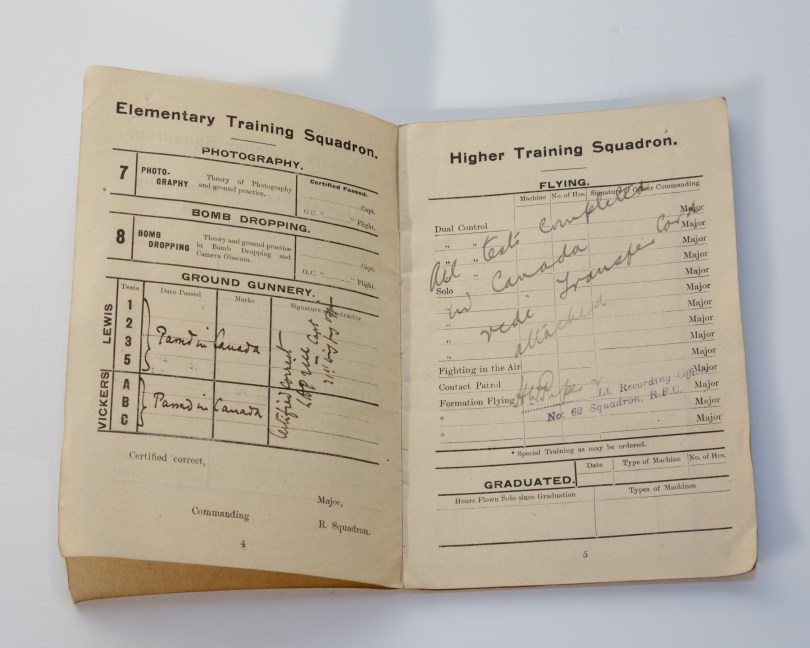 Elementary Training Squadron.
PHOTOGRAPHY.
7 PHOTO-GRAPHY Theory of Photography and ground practice. Certified Passed.
Capt.
O.C. " " Flight.
BOMB DROPPING.
8 BOMB DROPPING Theory and ground practice in Bomb Dropping and Camera Obscura.
Capt.
O.C. " " Flight.
GROUND GUNNERY.
Tests Date Passed Marks Signature Instructor
LEWIS
1
2
3 Passed in Canada
5
VICKERS
A
B Passed in Canada
C
Certified correct
Capt
Certified correct,
Major,
Commanding R. Squadron.
4
Higher Training Squadron.
FLYING.
Machine No. of Hrs. Signature Officer Commanding
Dual Control Major
" " Major
" " Major
Solo Major
" Major
" Major
" Major
" Major
Fighting in the Air Major
Contact Patrol
Formation Flying Major
" Major
" Major
All tests completed
in Canada
vide Transfer Card
attached
Lt. Recording Officer
No. 62 Squadron, R.F.C.
* Special Training as may be ordered.
GRADUATED. Date Type of Machine No. of Hrs.
Hours Flown Solo since Graduation Types of Machines
5